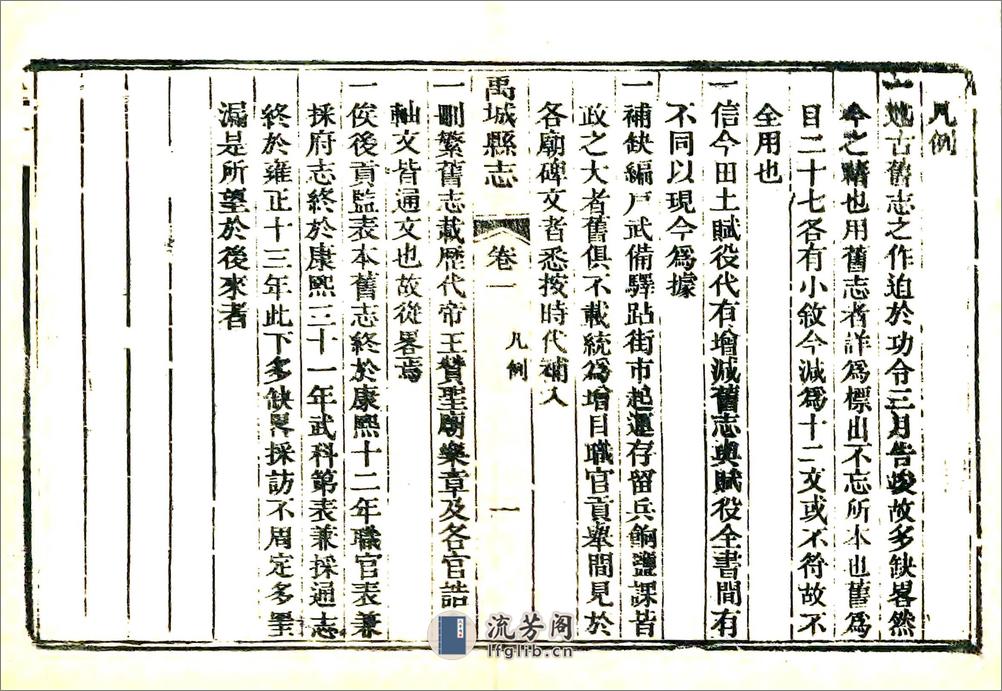 凡例
一 述古舊志之作迫於功令三月告竣故多缺畧然
今之藉也用舊志者詳為標出不忘所本也舊為
目二十七各有小敘今減為十二文或不符故不
全用也
一信今田土賦役代有增減舊志與賦役全書間有
不同以現今為據
一補缺編戸武備驛跕街市起運存留兵餉鹽課皆
政之大者舊俱不載統為增目職官貢舉間見於
各廟碑文者悉按時代補入
禹城縣志
卷一
凡例
一
一刪繁舊志載歷代帝王贊聖廟樂章及各官誥
軸文皆通文也故從畧焉
一俟後貢監表本舊志終於康熙十二年職官表兼
採府志終於康熙三十一年武科第表兼採通志
終於雍正十三年此下多缺畧採訪不周定多罣
漏是所望於後來者
流芳阁
lfglib.cn